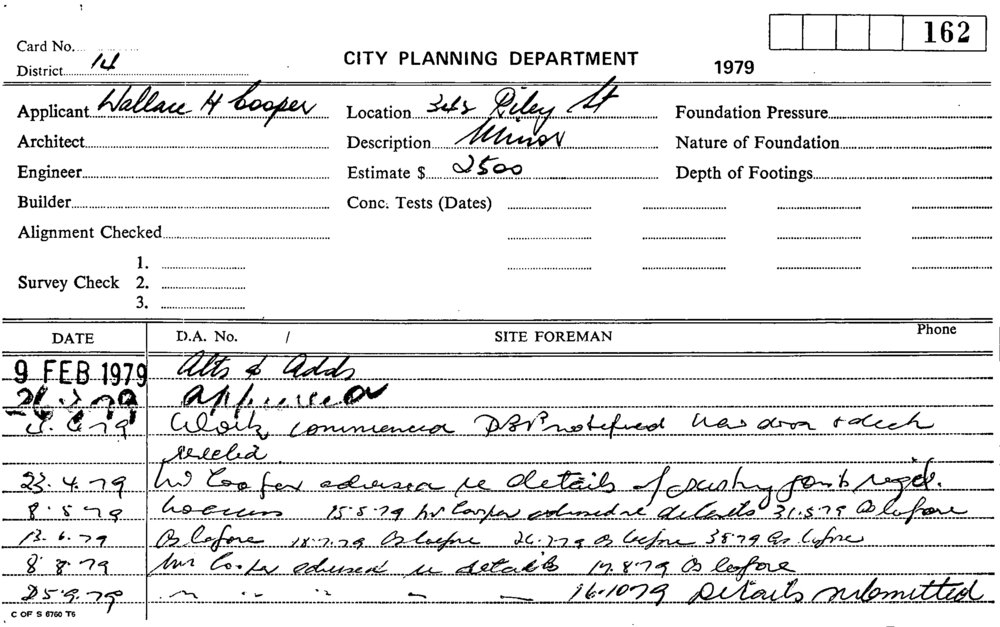 162
Card No.
CITY PLANNING DEPARTMENT
1979
District 14
Applicant Wallace H Cooper Location 342 Riley St Foundation Pressure
Architect Description Minor Nature of Foundation
Engineer Estimate $ 2500 Depth of Footings
Builder Conc. Tests (Dates)
Alignment Checked
1.
Survey Check 2.
3.
DATE D.A. No. / SITE FOREMAN Phone
9 FEB 1979 Alts & Adds
approved
Work commenced notified new door & deck
23.4.79 Mr Cooper advised re details of existing reqd.
8.5.79 15.5.79 Mr Cooper advised re details 31.5.79 As before
13.6.79 As before 18.7.79 As before 26.7.79 As before 3.8.79 As before
8.8.79 Mr Cooper advised re details 17.8.79 As before
25.9.79 " " " - - 16.10.79 Details submitted
C OF S 6760 T6